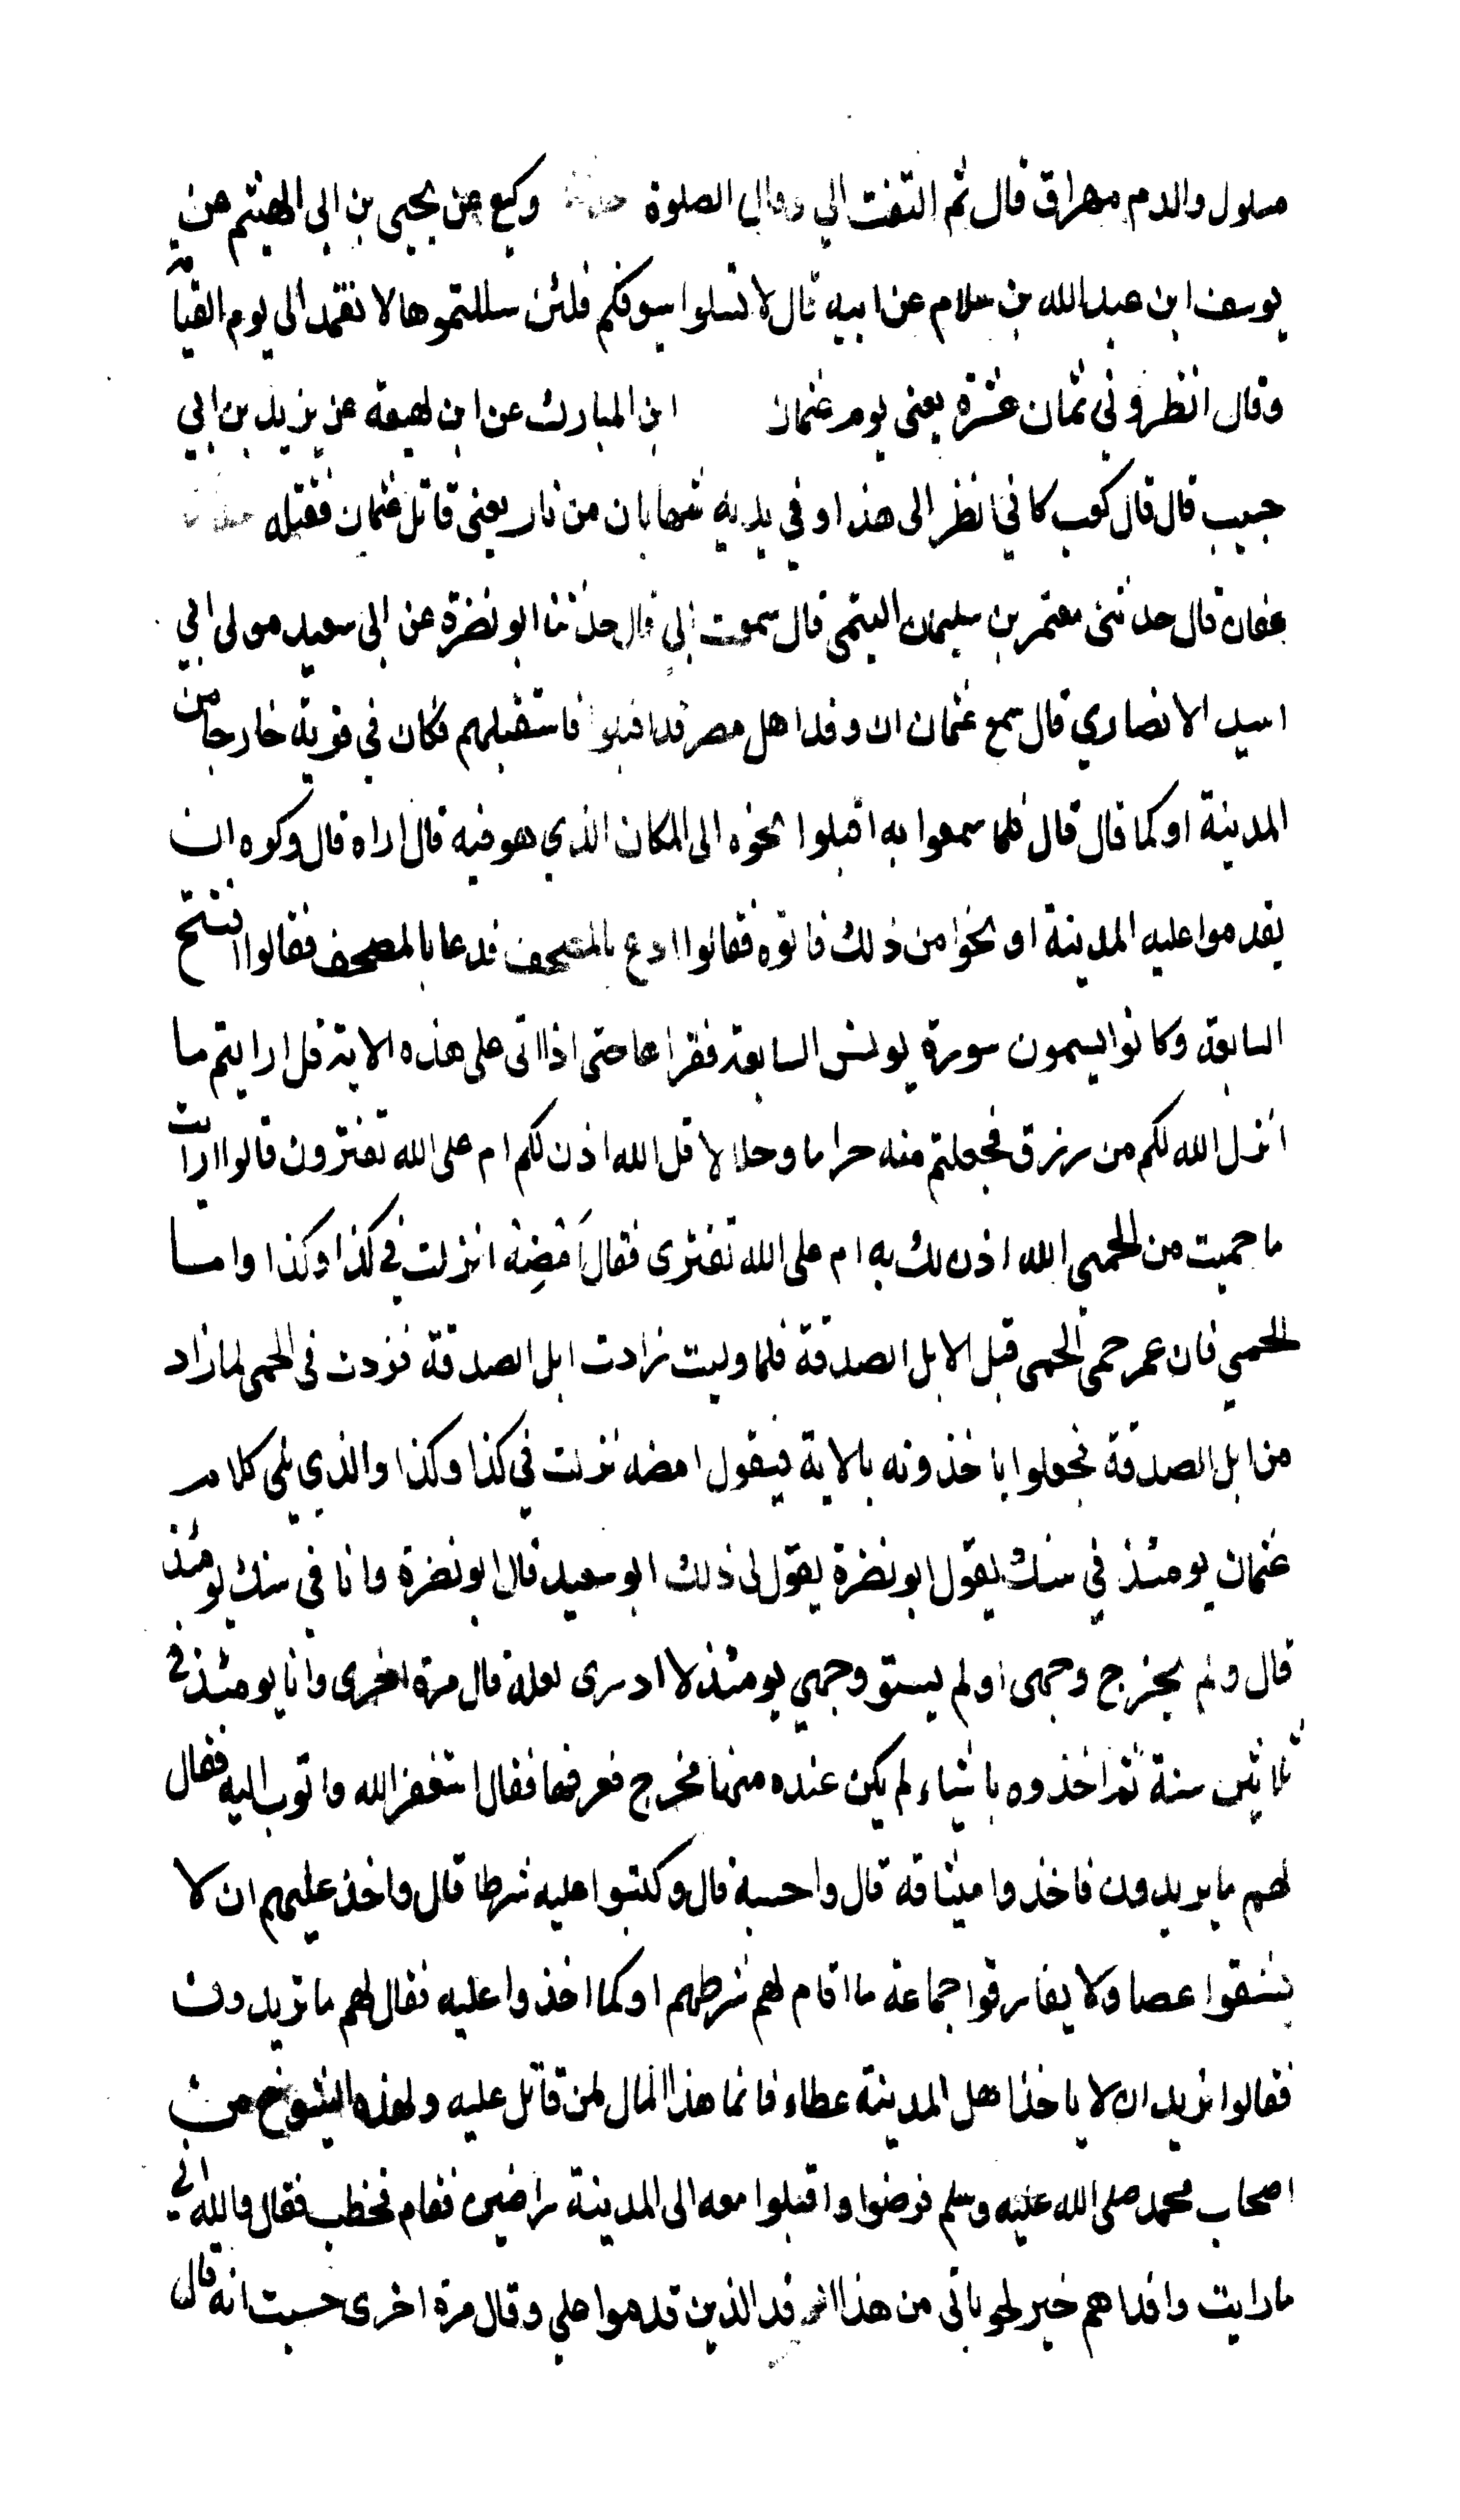 مسلول والدم مهراق قال ثم التفت الي وقال الصلوة حدثنا وكيع عن يحيى بن ابى الهيثم عن
يوسف ابن عبد الله بن سلام عن ابيه قال لا تسلوا سيوفكم فلئن سللتموها لا تغمد الى يوم القيامة
وقال انظروني ثمان عشرة يعنى يوم عثمان ابن المبارك عن ابن لهيعة عن يزيد بن ابي
حبيب قال قال كعب كاني انظر الى هذا وفي يديه شهابان من نار يعنى قاتل عثمان فقتله حدثنا
عفان قال حدثنى معتمر بن سليمان التيمى قال سمعت ابي قال حدثنا ابو نضرة عن ابى سعيد مولى ابي
اسيد الانصاري قال سمع عثمان ان وفد اهل مصر قد اقبلوا فاستقبلهم فكان في قرية خارجا من
المدينة او كما قال قال فلما سمعوا به اقبلوا نحوه الى المكان الذي هو فيه قال اراه قال وكره ان
يقدموا عليه المدينة او نحوا من ذلك فاتوه فقالوا ادع بالمصحف فدعا بالمصحف فقالوا افتتح
السابعة وكانوا يسمون سورة يونس السابعة فقراها حتى اذا اتى على هذه الاية قل ارايتم ما
انزل الله لكم من رزق فجعلتم منه حراما وحلالا قل الله اذن لكم ام على الله تفترون قالوا ارايت
ما حميت من الحمى الله اذن لك به ام على الله تفترى فقال امضه انزلت في كذا وكذا واما
الحمي فان عمر حمى الحمى قبل الابل الصدقة فلما وليت زادت ابل الصدقة فزدت فى الحمى لما زاد
من ابل الصدقة فجعلوا ياخذونه بالاية فيقول امضه نزلت في كذا وكذا والذي يلى كلام
عثمان يومئذ في سنك يقول ابو نضرة يقول لى ذلك ابو سعيد قال ابو نضرة وانا في سنك يومئذ
قال ولم يخرج وجهى او لم يستو وجهي يومئذ لا ادرى لعله قال مرة اخرى وانا يومئذ في
ثلاثين سنة ثم اخذوه باشياء لم يكن عنده منها مخرج فعرفها فقال استغفر الله واتوب اليه فقال
لهم ما يريدون فاخذوا ميثاقه قال واحسبه قال وكتبوا عليه شرطا قال واخذ عليهم ان لا
يشقوا عصا ولا يفارقوا جماعة ما اقام لهم شرطهم او كما اخذوا عليه فقال لهم ما تريدون
فقالوا نريد ان لا ياخذ اهل المدينة عطاء فانما هذا المال لمن قاتل عليه ولهذه الشيوخ من
اصحاب محمد صلى الله عليه وسلم فرضوا واقبلوا معه الى المدينة راضين فقام فخطب فقال والله اني
ما رايت وافدا هم خير من هذا الوفد الذين قدموا علي وقال مرة اخرى حسبت انه قال